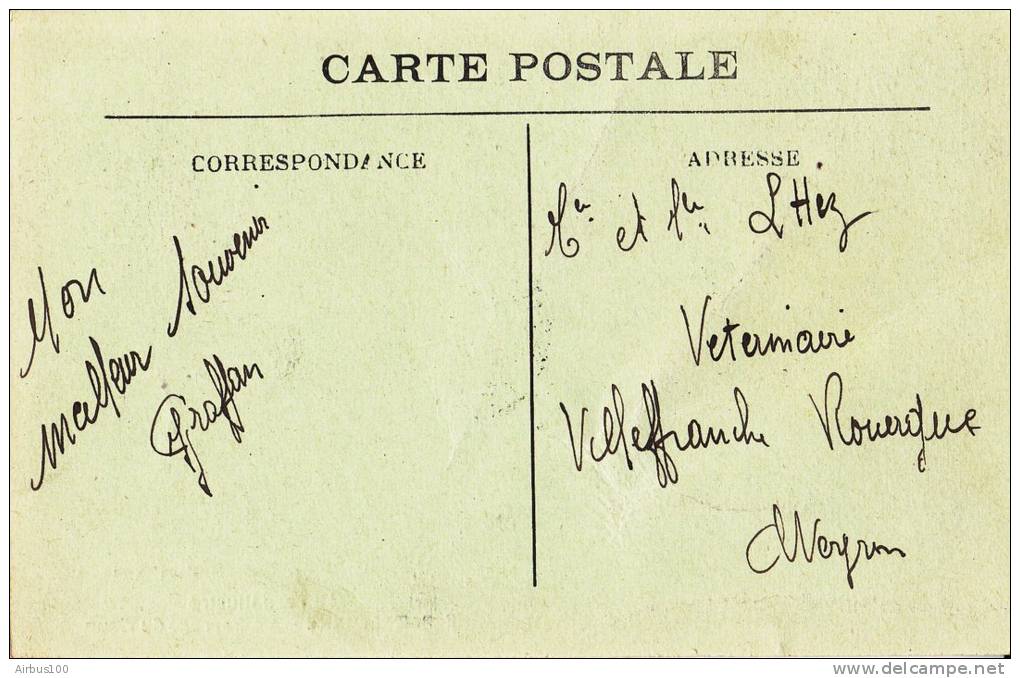 CARTE POSTALE
CORRESPONDANCE
Mon
meilleur Souvenir
ADRESSE
et L Hez
Veterinaire
Villefranche Rouergue
Aveyron
Airbus100
www.delcampe.net